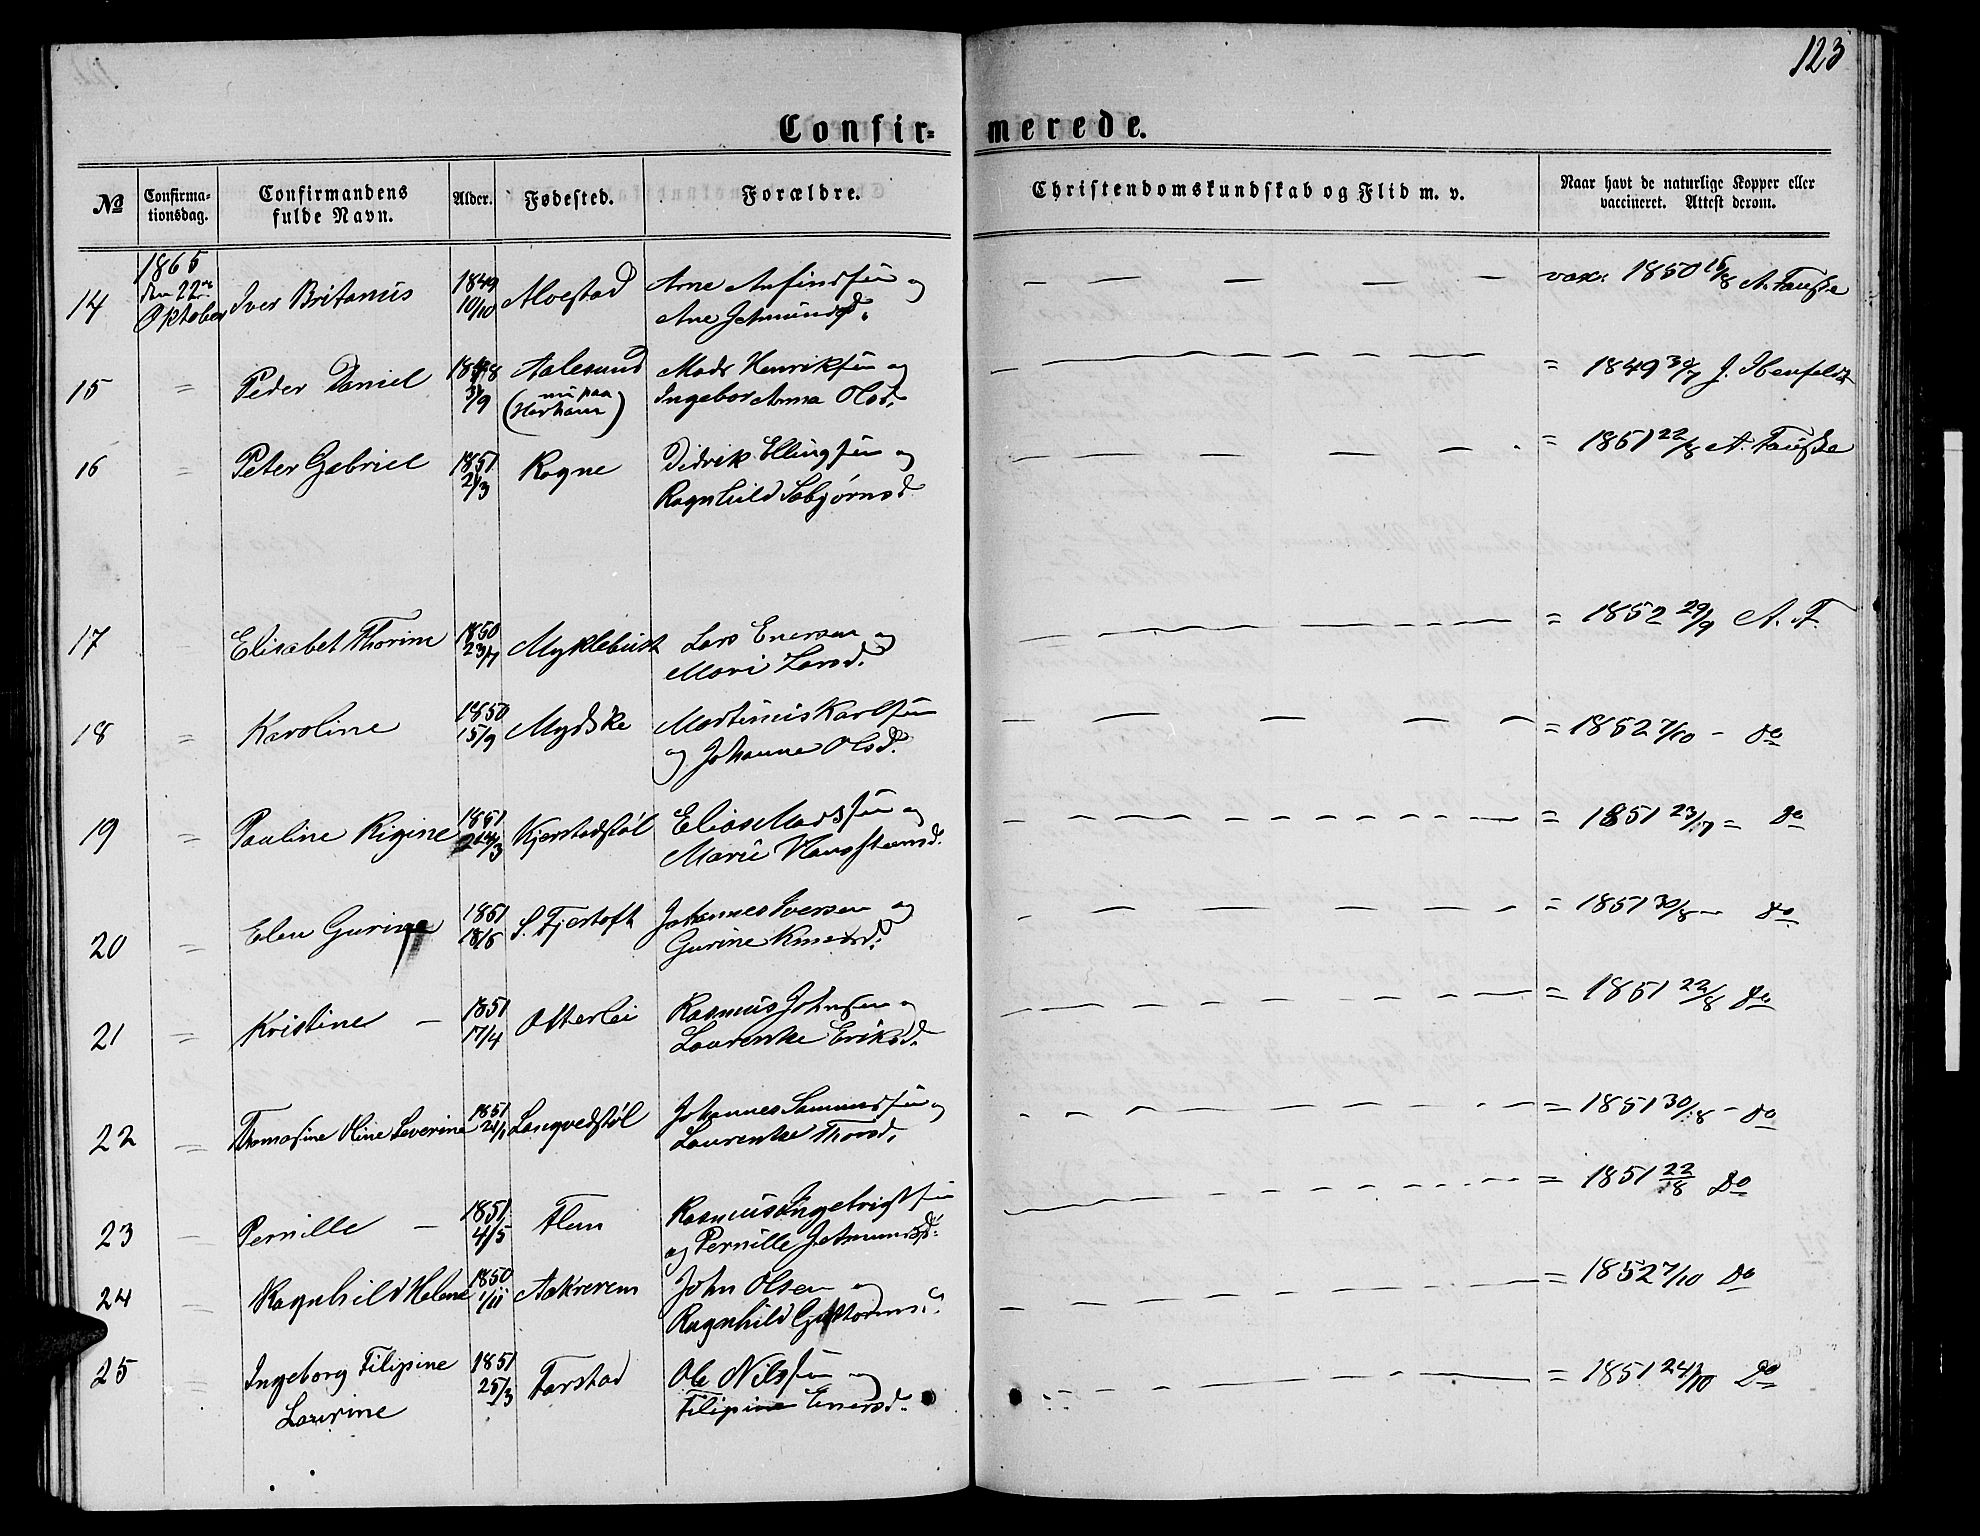 123
Confir=merede.
No
Confirma-
tionsdag.
Confirmandens
fulde Navn.
Alder.
Fødested.
Forældre.
Christendomskundskab og Flid m. v.
Naar havt de naturlige Kopper eller
vaccineret. Attest derom.
1865
den 22
Oktober
14 Iver Britanus 1849 10/10 Alvestad Arne Anfindsen og vax. 1850 A. Fauske
Ane Jetmundsd.
15 = Peder Daniel 1848 Aalesund Mads Henriksen og = 1849 30/7 J.
(nu paa
Harham) Ingebor Anna Olsd.
16 = Peter Gabriel 1851 Rogne Didrik Ellingsen og = 1851 22/8 A. Fauske
2/3 Ragnhild
17 = Elisabet Thorine 1850 Myklebust Lars Enersen og = 1852 29/9 A. F.
23/7 Mari Larsd.
18 = Karoline 1850 Mydske Martinus Karlsen = 1852 7/10 - do
15/9 og Johanne Olsd.
19 = Pauline Rigine 1851 Kjerstadstøl Elias Madssen og = 1851 23/7 = do
Marie
20 = Elen Gurine 1851 S. Fjærtoft Johannes Iversen og = 1851 30/8 - do
18/5 Gurine Knudsd.
21 = Kristine - 1851 Otterlei Rasmus Johnsen og = 1851 22/8 do
17/4 Laurentse Eriksd.
22 = Thomasine Oline Severine 1851 Longvedstøl Johannes Samundsen og = 1851 30/8 - do
Laurentse Thorsd.
23 = Pernille - 1851 Flem Rasmus Ingebrigtsen = 1851 22/8 Do
4/5 og Pernille Jetmundsd.
24 = Ragnhild Helene 1850 Aakrerem John Olsen og = 1852 7/10 Do
1/11 Ragnhild Guttormsd.
25 = Ingeborg Filipine 1851 Farstad Ole Nilssen og = 1851 24/10 Do
Laurine 25/3 Filipine Enersd.